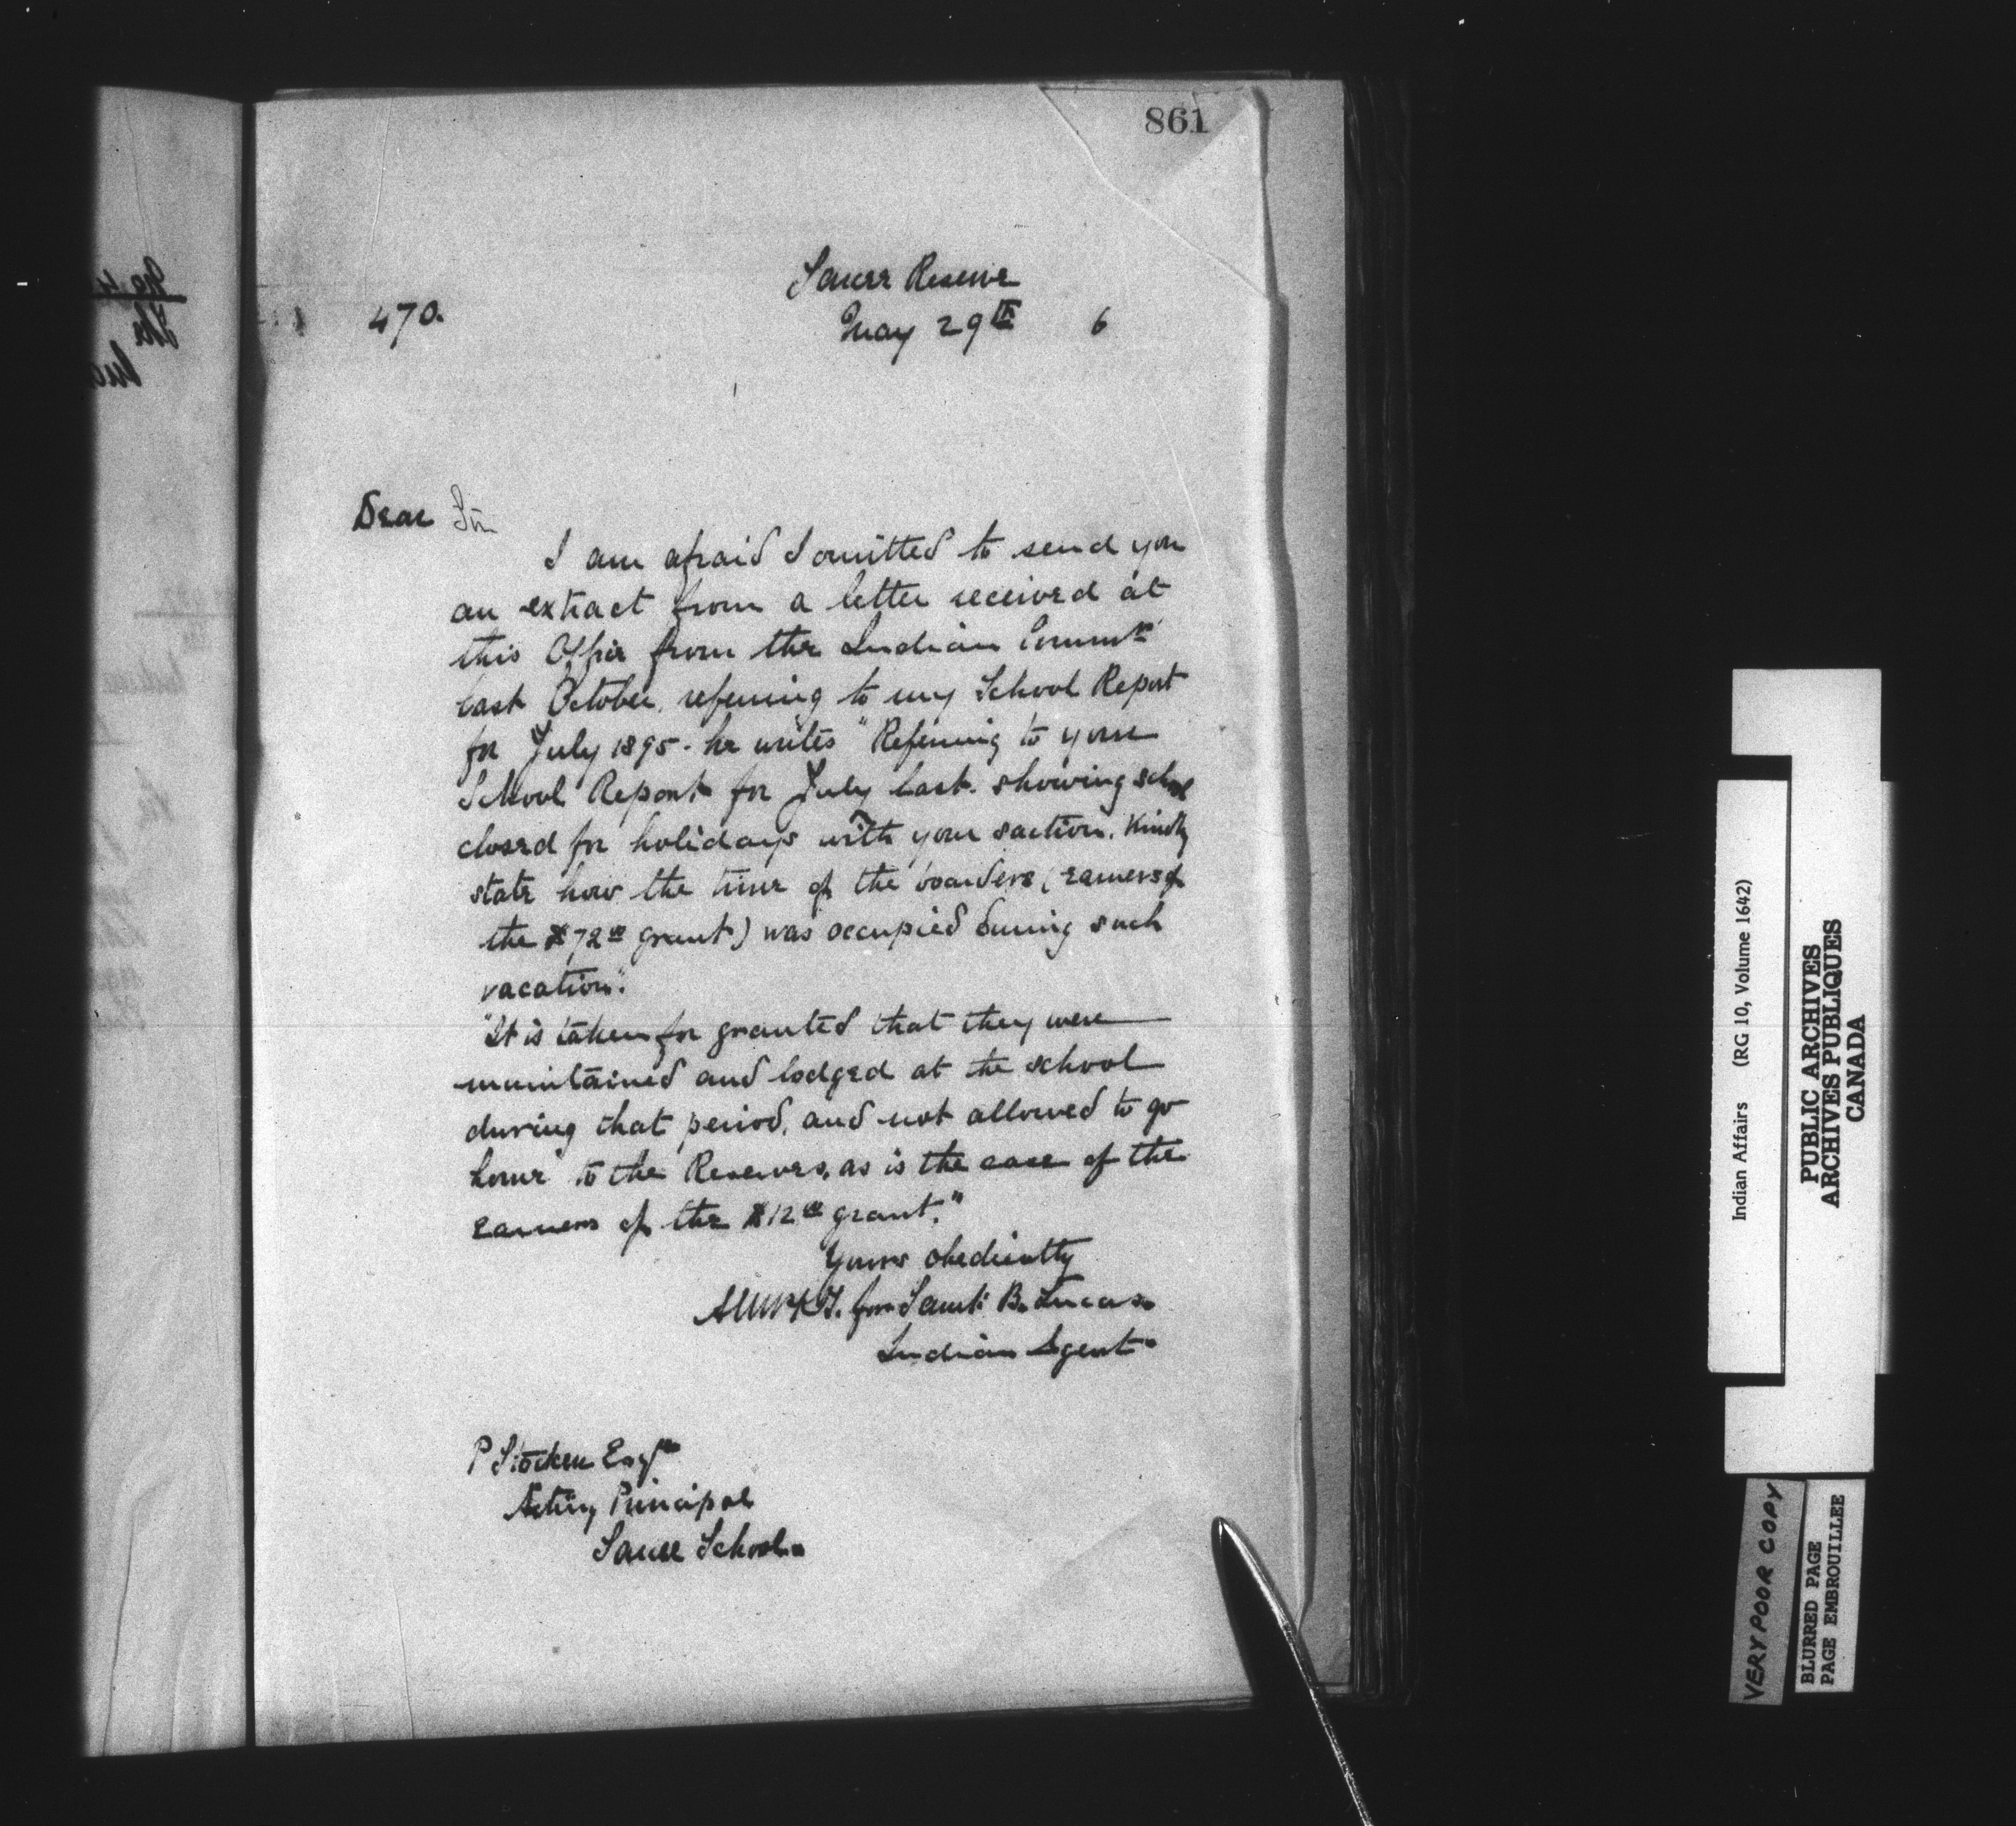 861
Sarcee Reserve
470. May 29th 6
Dear Sir
I am afraid I omitted to send you
an extract from a letter received at
this Office from the Indian Commr
last October, referring to my School Report
for July 1895 - he writes "Referring to your
School Report for July last. showing school
closed for holidays with your saction. Kindly
state how the time of the boarders (earners of
the $72 00 grant) was occupied during such
vacation."
"It is taken for granted that they were
maintained and lodged at the school
during that period, and not allowed to go
home to the Reserves, as is the case of the
earners of the $12 00 grant."
Yours obediently
for Saml. B. Lucas
Indian Agent.
P Stocken Esqre
Acting Principal
Sarcee School.
Indian Affairs (RG 10, Volume 1642)
PUBLIC ARCHIVES
ARCHIVES PUBLIQUES
CANADA
VERY POOR COPY
BLURRED PAGE
PAGE EMBROUILLEE